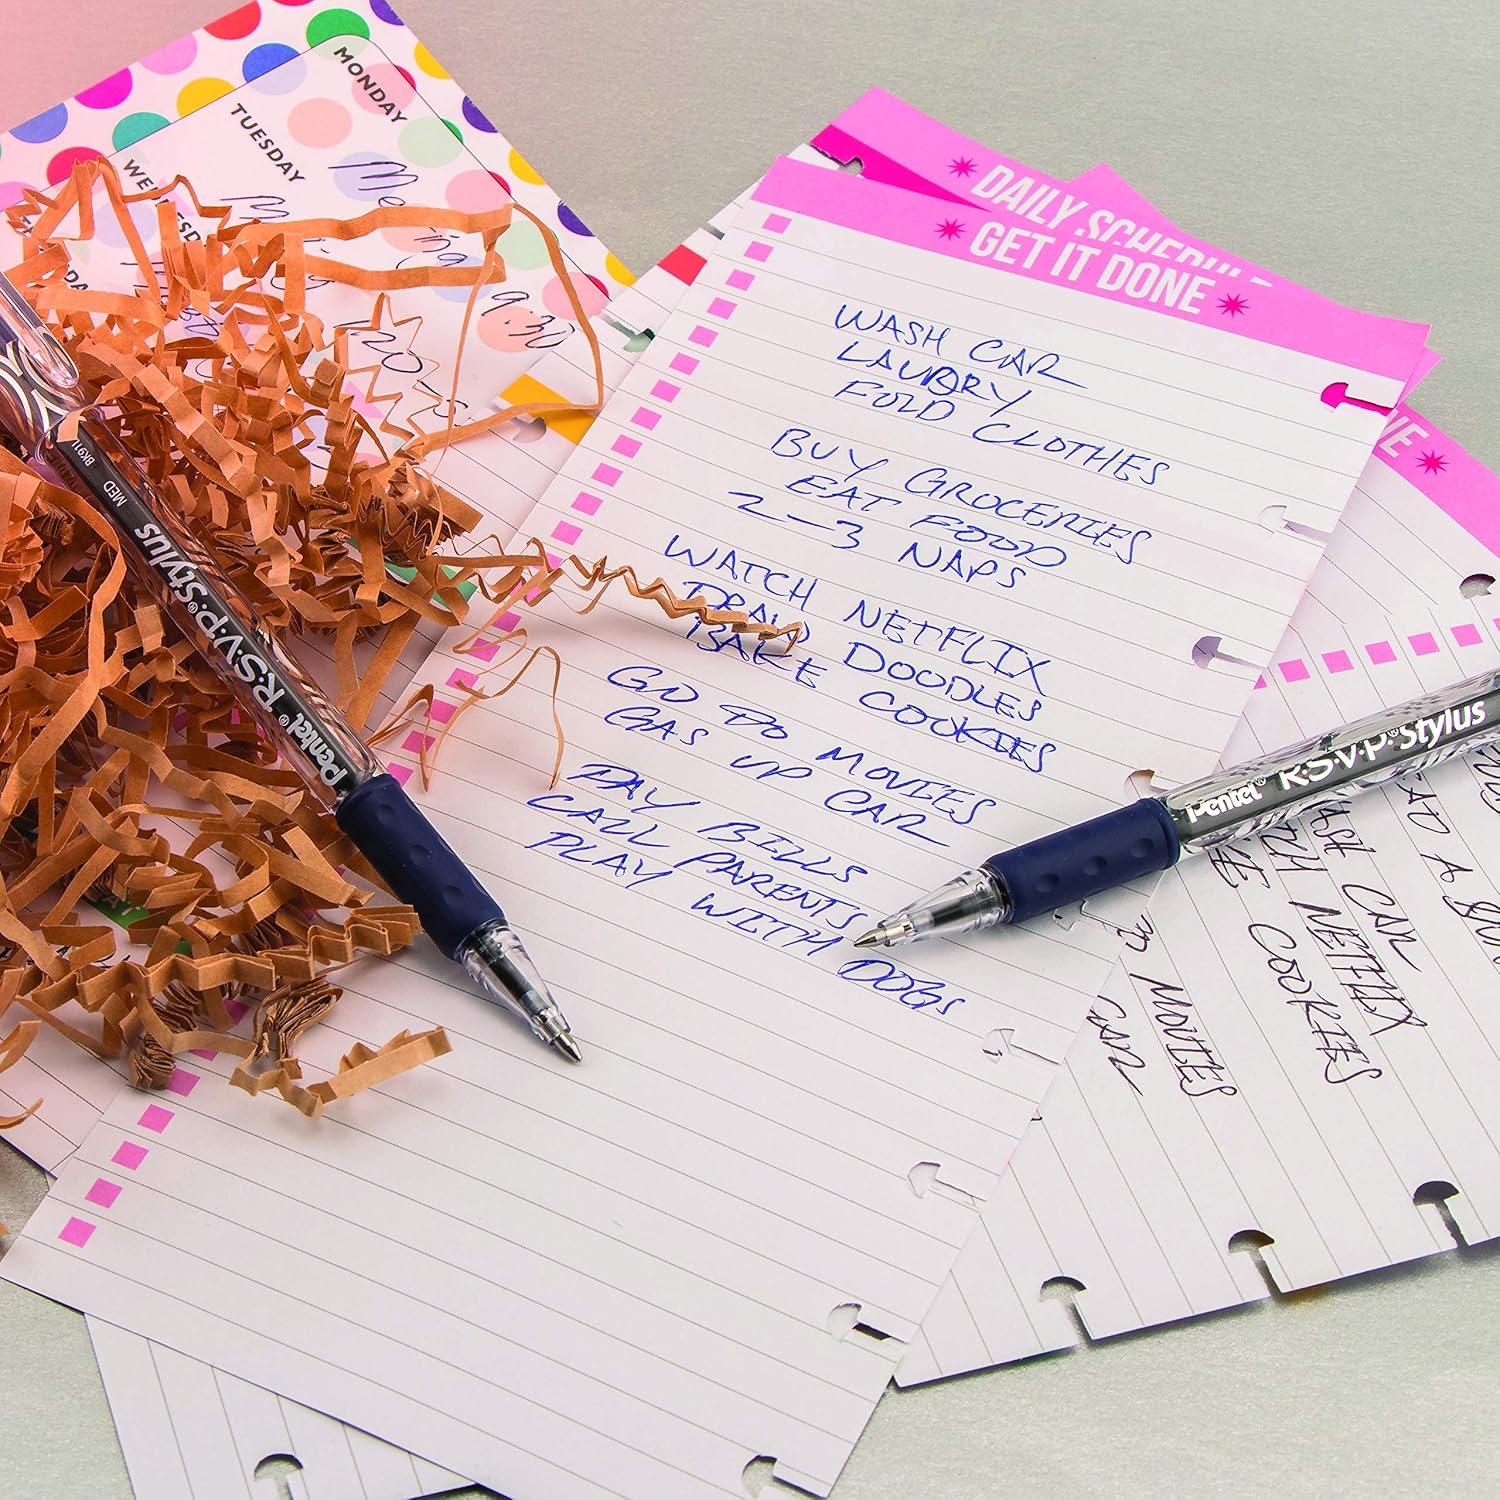 MONDAY
TUESDAY
DAILY
GET IT DONE
WASH CAR
LAUNDRY
FOLD CLOTHES
BUY GROCERIES
EAT FOOD
2-3 NAPS
WATCH NETFLIX
DRAW DOODLES
BAKE COOKIES
GO TO MOVIES
GAS UP CAR
PAY BILLS
CALL PARENTS
PLAY WITH DOGS
BK911 MED
Pentel® R·S·V·P·® Stylus
Pentel® R·S·V·P·® Stylus
930
MOVIES
CAR
CAR
NETFLIX
COOKIES